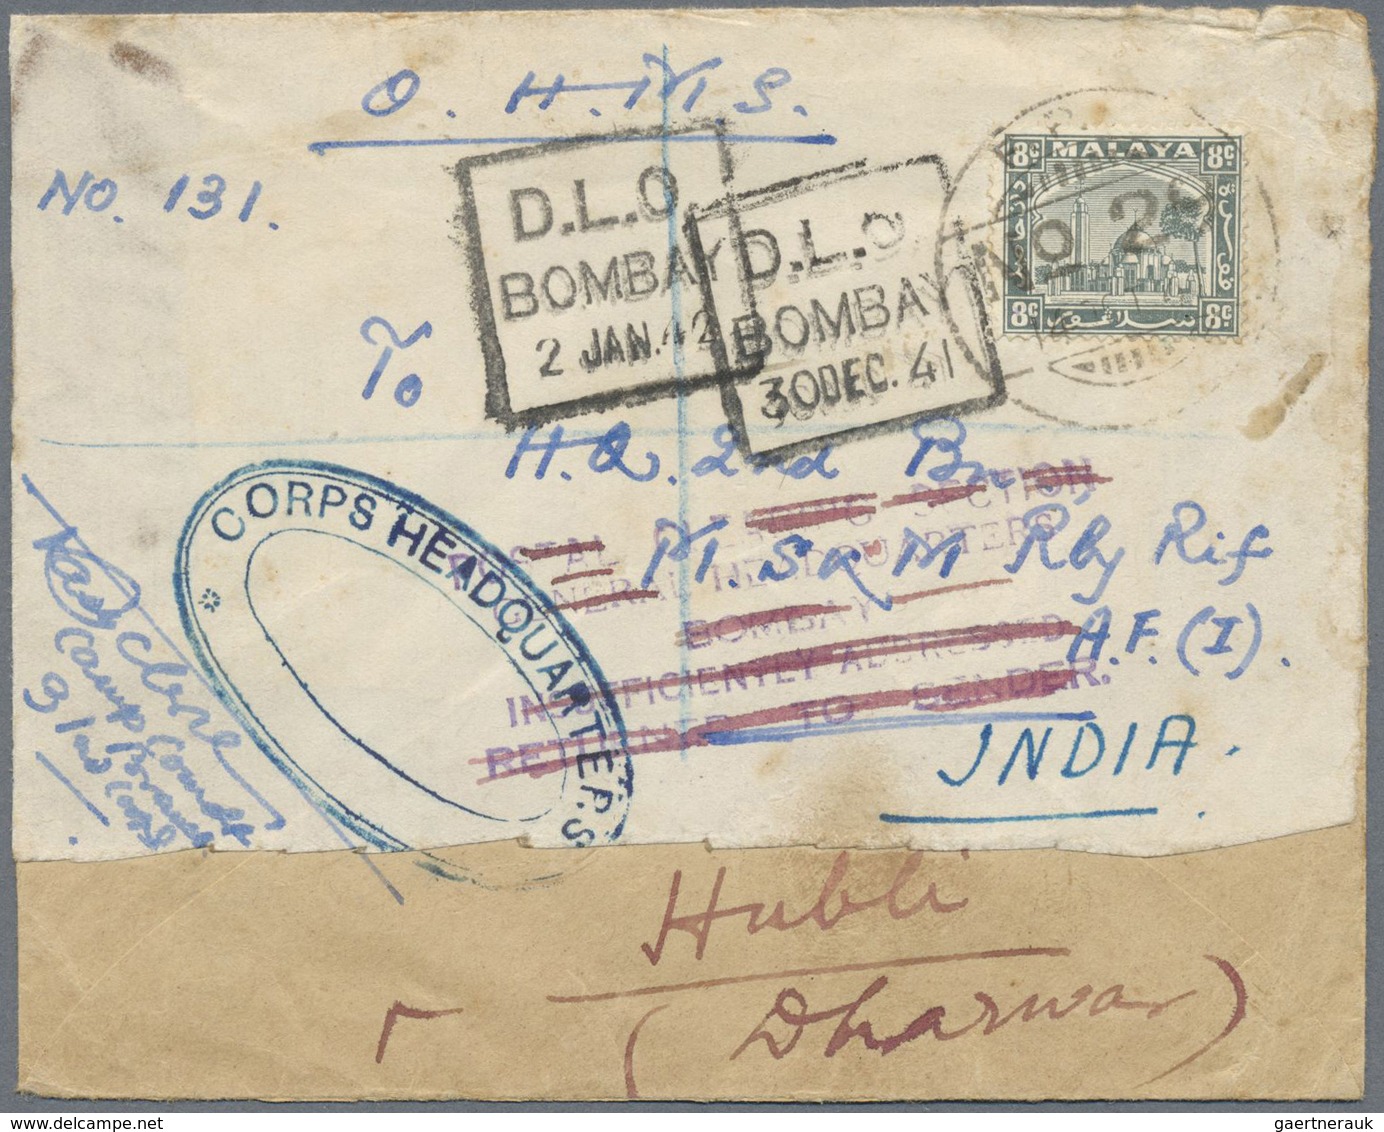 O. H. M. S.
No. 131.
D.L.O
BOMBAY
2 JAN. 42
D.L.O
BOMBAY
30 DEC. 41
8c MALAYA 8c
No 29
8c 8c
To
H.Q. 2nd Bn
M. S & M Rly Rif
A.F. (I).
INDIA.
SECTION
GENERAL HEADQUARTERS
BOMBAY
INSUFFICIENTLY ADDRESSED
RETURNED TO SENDER.
CORPS HEADQUARTERS
Camp
Hubli
(Dharwar)
gaertnerauk